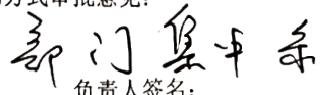 方式审批意见:
部门集中采
负责人签名: